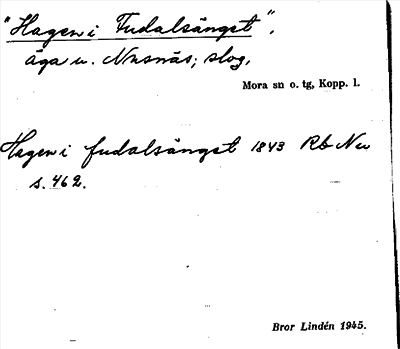 "Hagen i Fudalsänget",
äga u. Nusnäs; slog,
Mora sn o. tg, Kopp. l.
Hagen i fudalsänget 1843 Rb Nu
s. 462.
Bror Lindén 1945.